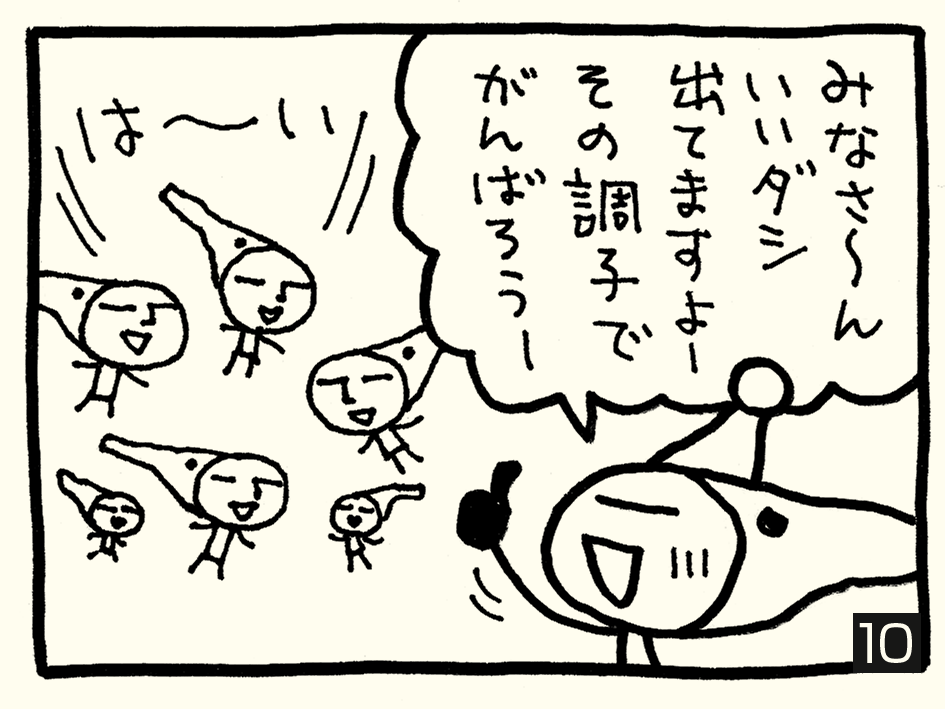 みなさ〜ん
いいダシ
出てますよー
その調子で
がんばろうー
は〜い
10